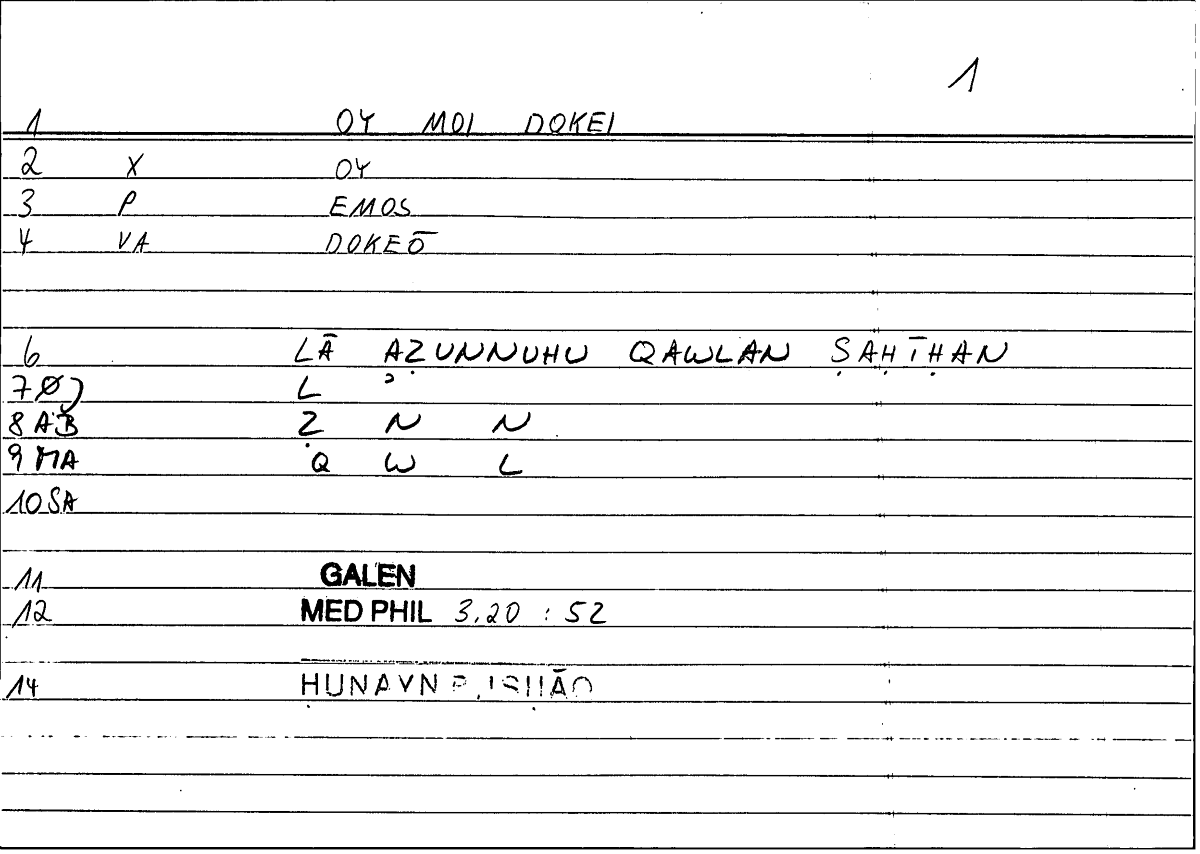 1
1 OY MOI DOKEI
2 X OY
3 P EMOS
4 VA DOKEŌ
6 LĀ AẒUNNUHU QAWLAN ṢAḤĪḤAN
7 Ø) L ʾ
8 AB Ẓ N N
9 MA Q W L
10 SA
11 GALEN
12 MED PHIL 3.20 : 52
14 ḤUNAYN B. ISḤĀQ